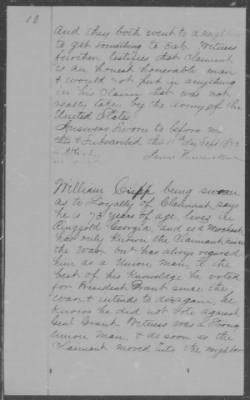 10
And they both went to a neighbor
to get something to eat. Witness
further testifies that Claimant
is an honest honorable man
& would not put in anything
in his Claim that was not
really taken by the army of the
United States
Answers Sworn to before me
& Subscribed the Sept.
William Cupp being sworn
as to Loyalty of Claimant says
he is 73 years of age lives in
Ringgold Georgia and is a
has only known the Claimant since
the War but has always regarded
him as a Union man, to the
best of his Knowledge he voted
for President Grant since the
war & intends to do so again, he
knows he did not vote against
Genl Grant Witness was a strong
Union man, & as soon as the
Claimant moved into the neighbor